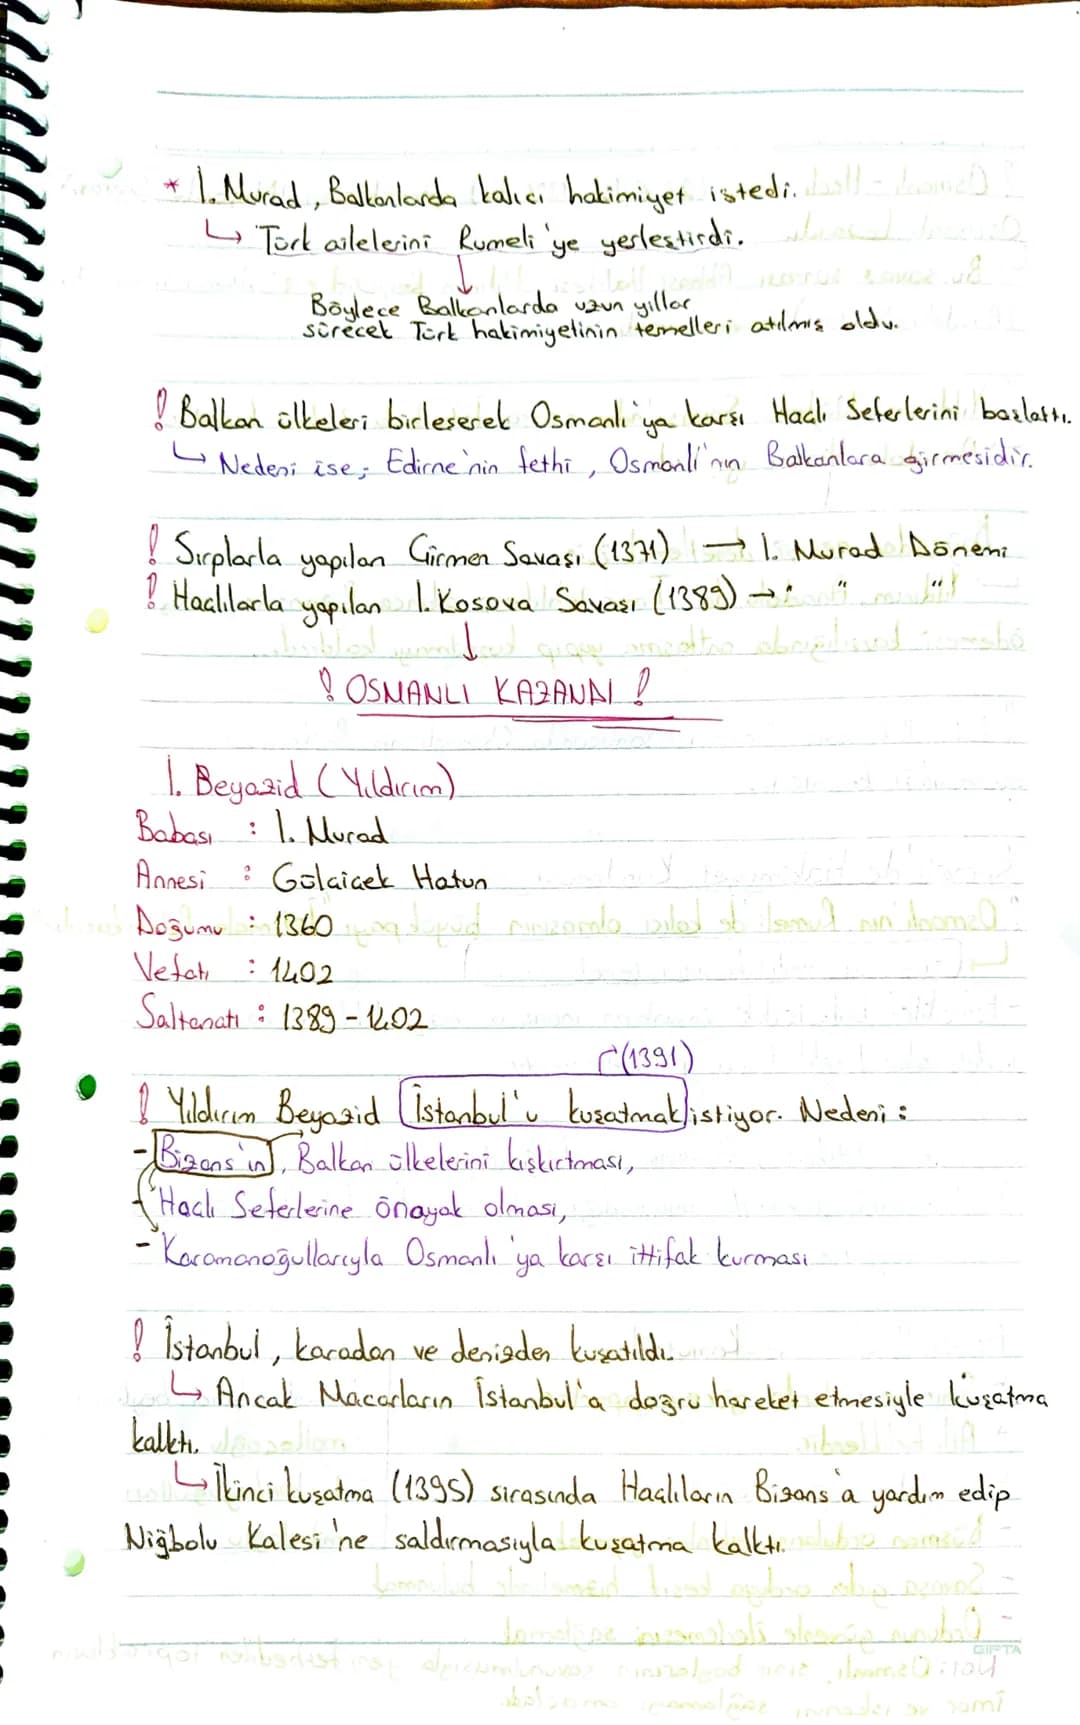 * I. Murad, Balkanlarda kalıcı hakimiyet istedi.
↳ Türk ailelerini Rumeli'ye yerleştirdi.
↓
Böylece Balkanlarda uzun yıllar
sürecek Türk hakimiyetinin temelleri atılmış oldu.
! Balkan ülkeleri birleşerek Osmanlı'ya karşı Haçlı Seferlerini başlattı.
↳ Nedeni ise; Edirne'nin fethi, Osmanlı'nın Balkanlara girmesidir.
! Sırplarla yapılan Çirmen Savaşı (1371) → I. Murad Dönemi
! Haçlılarla yapılan I. Kosova Savaşı (1389) → " " "
↓
! OSMANLI KAZANDI !
I. Beyazid (Yıldırım)
Babası : I. Murad
Annesi : Gülçiçek Hatun
Doğumu : 1360
Vefatı : 1402
Saltanatı : 1389 - 1402
(1391)
! Yıldırım Beyazid İstanbul'u kuşatmak istiyor. Nedeni :
- Bizans'ın, Balkan ülkelerini kışkırtması,
- Haçlı Seferlerine önayak olması,
- Karamanoğullarıyla Osmanlı'ya karşı ittifak kurması
! İstanbul, karadan ve denizden kuşatıldı.
↳ Ancak Macarların İstanbul'a doğru hareket etmesiyle kuşatma
kalktı.
↳ İkinci kuşatma (1395) sırasında Haçlıların Bizans'a yardım edip
Niğbolu Kalesi'ne saldırmasıyla kuşatma kalktı.
GIPTA